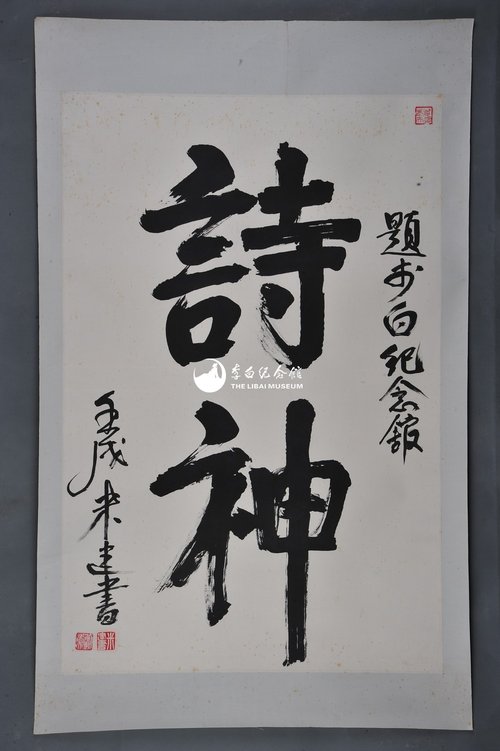 題李白纪念館
詩神
壬戌 米建書
李白纪念馆
THE LIBAI MUSEUM